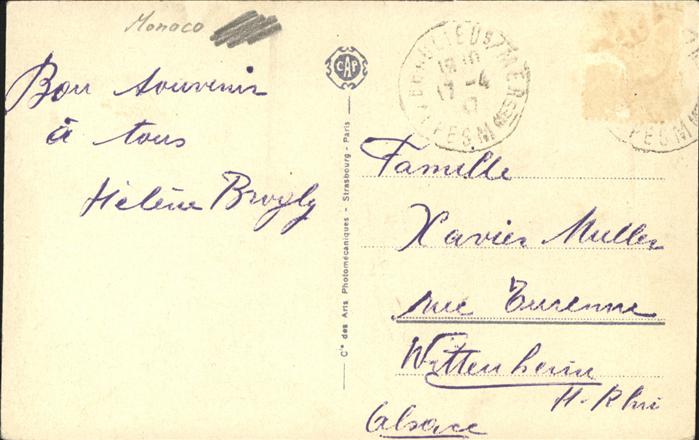 Monaco
Bon souvenir
à tous
Hélène Brogly
CAP
Cie des Arts Photomécaniques - Strasbourg - Paris
BEAULIEU S/ MER
17 -4
Famille
Xavier Muller
rue Turenne
Wittenheim
H-Rhin
Alsace